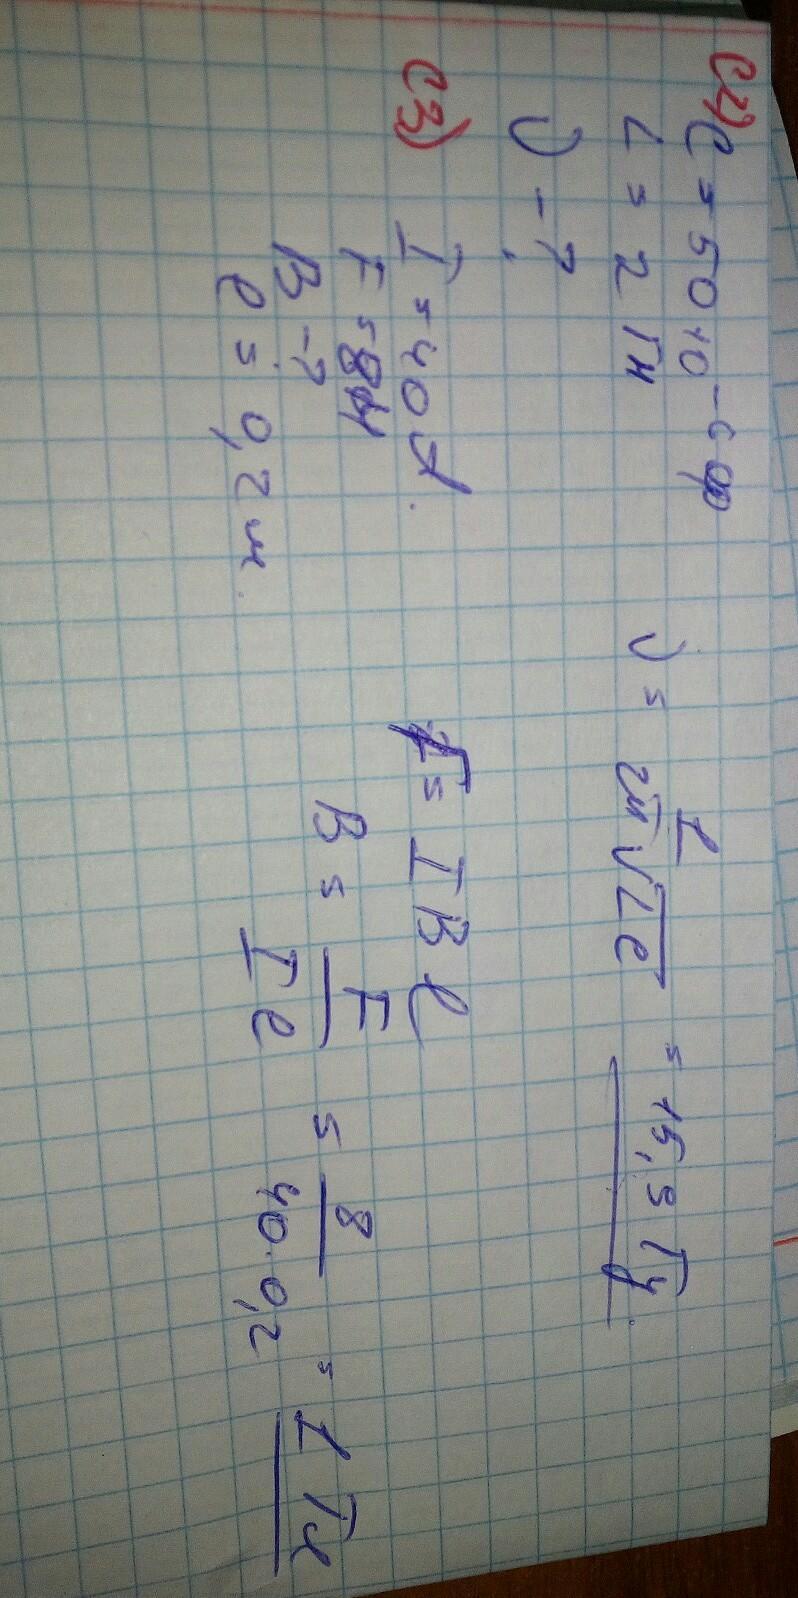 С2) C = 50·10⁻⁶ Ф
L = 2 Гн
ν - ?
ν = 1 / 2π√LC = 15,9 Гц.
С3) I = 40 А.
F = 8 Н
B - ?
l = 0,2 м.
F = I B l
B = F / I l = 8 / 40·0,2 = 1 Тл